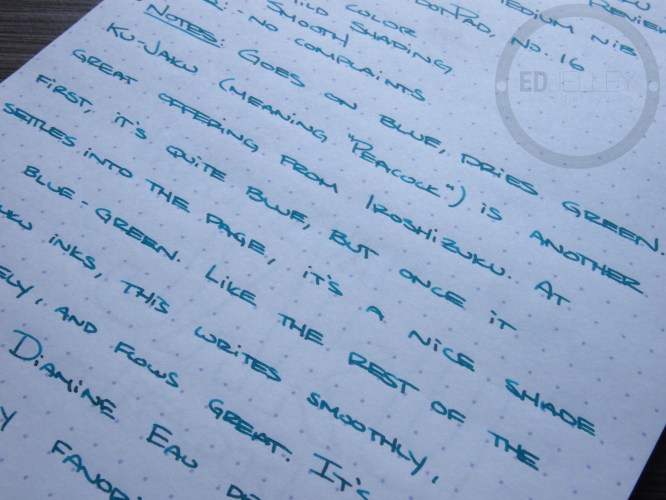 REVIEW
MEDIUM NIB
DOTPAD, NO. 16
COLOR
SMOOTH SHADING
- NO COMPLAINTS
NOTES: GOES ON BLUE, DRIES GREEN.
KU-JAKU (MEANING "PEACOCK") IS ANOTHER
GREAT OFFERING FROM IROSHIZUKU. AT
FIRST, IT'S QUITE BLUE, BUT ONCE IT
SETTLES INTO THE PAGE, IT'S A NICE SHADE
BLUE-GREEN. LIKE THE REST OF THE
UKU INKS, THIS WRITES SMOOTHLY,
ELY, AND FLOWS GREAT. IT'S
DIAMINE EAU DE
ED JELLEY